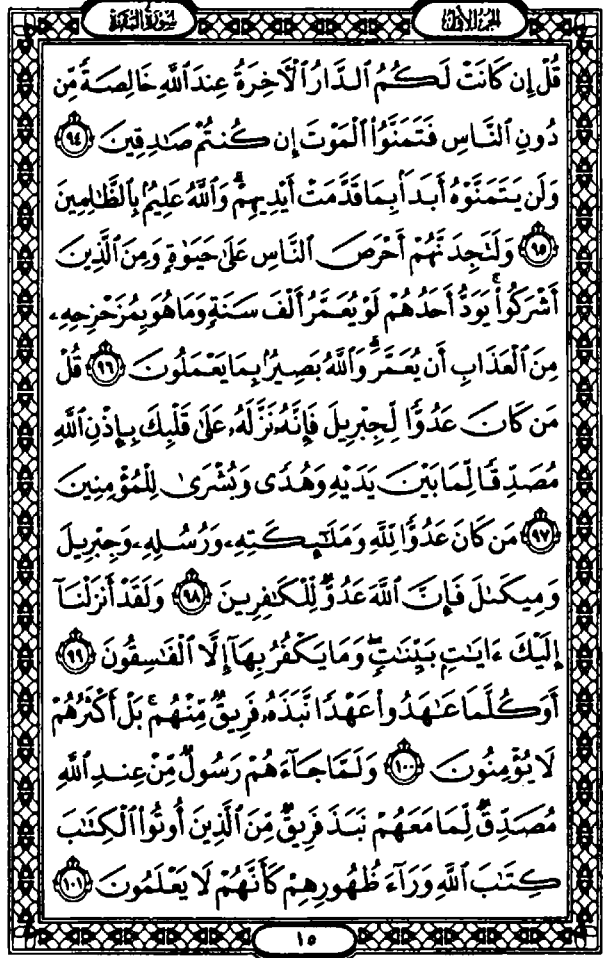 سُورَةُ البَقَرَةِ
الجُزْءُ الأَوَّلُ
قُلْ إِن كَانَتْ لَكُمُ ٱلدَّارُ ٱلْأَخِرَةُ عِندَ ٱللَّهِ خَالِصَةً مِّن
دُونِ ٱلنَّاسِ فَتَمَنَّوُا۟ ٱلْمَوْتَ إِن كُنتُمْ صَٰدِقِينَ ٩٤
وَلَن يَتَمَنَّوْهُ أَبَدًۢا بِمَا قَدَّمَتْ أَيْدِيهِمْ ۗ وَٱللَّهُ عَلِيمٌۢ بِٱلظَّٰلِمِينَ
٩٥ وَلَتَجِدَنَّهُمْ أَحْرَصَ ٱلنَّاسِ عَلَىٰ حَيَوٰةٍ وَمِنَ ٱلَّذِينَ
أَشْرَكُوا۟ ۚ يَوَدُّ أَحَدُهُمْ لَوْ يُعَمَّرُ أَلْفَ سَنَةٍ وَمَا هُوَ بِمُزَحْزِحِهِۦ
مِنَ ٱلْعَذَابِ أَن يُعَمَّرَ ۗ وَٱللَّهُ بَصِيرٌۢ بِمَا يَعْمَلُونَ ٩٦ قُلْ
مَن كَانَ عَدُوًّا لِّجِبْرِيلَ فَإِنَّهُۥ نَزَّلَهُۥ عَلَىٰ قَلْبِكَ بِإِذْنِ ٱللَّهِ
مُصَدِّقًا لِّمَا بَيْنَ يَدَيْهِ وَهُدًى وَبُشْرَىٰ لِلْمُؤْمِنِينَ
٩٧ مَن كَانَ عَدُوًّا لِّلَّهِ وَمَلَٰٓئِكَتِهِۦ وَرُسُلِهِۦ وَجِبْرِيلَ
وَمِيكَىٰلَ فَإِنَّ ٱللَّهَ عَدُوٌّ لِّلْكَٰفِرِينَ ٩٨ وَلَقَدْ أَنزَلْنَآ
إِلَيْكَ ءَايَٰتٍۭ بَيِّنَٰتٍ ۖ وَمَا يَكْفُرُ بِهَآ إِلَّا ٱلْفَٰسِقُونَ ٩٩
أَوَكُلَّمَا عَٰهَدُوا۟ عَهْدًا نَّبَذَهُۥ فَرِيقٌ مِّنْهُم ۚ بَلْ أَكْثَرُهُمْ
لَا يُؤْمِنُونَ ١٠٠ وَلَمَّا جَآءَهُمْ رَسُولٌ مِّنْ عِندِ ٱللَّهِ
مُصَدِّقٌ لِّمَا مَعَهُمْ نَبَذَ فَرِيقٌ مِّنَ ٱلَّذِينَ أُوتُوا۟ ٱلْكِتَٰبَ
كِتَٰبَ ٱللَّهِ وَرَآءَ ظُهُورِهِمْ كَأَنَّهُمْ لَا يَعْلَمُونَ ١٠١
١٥